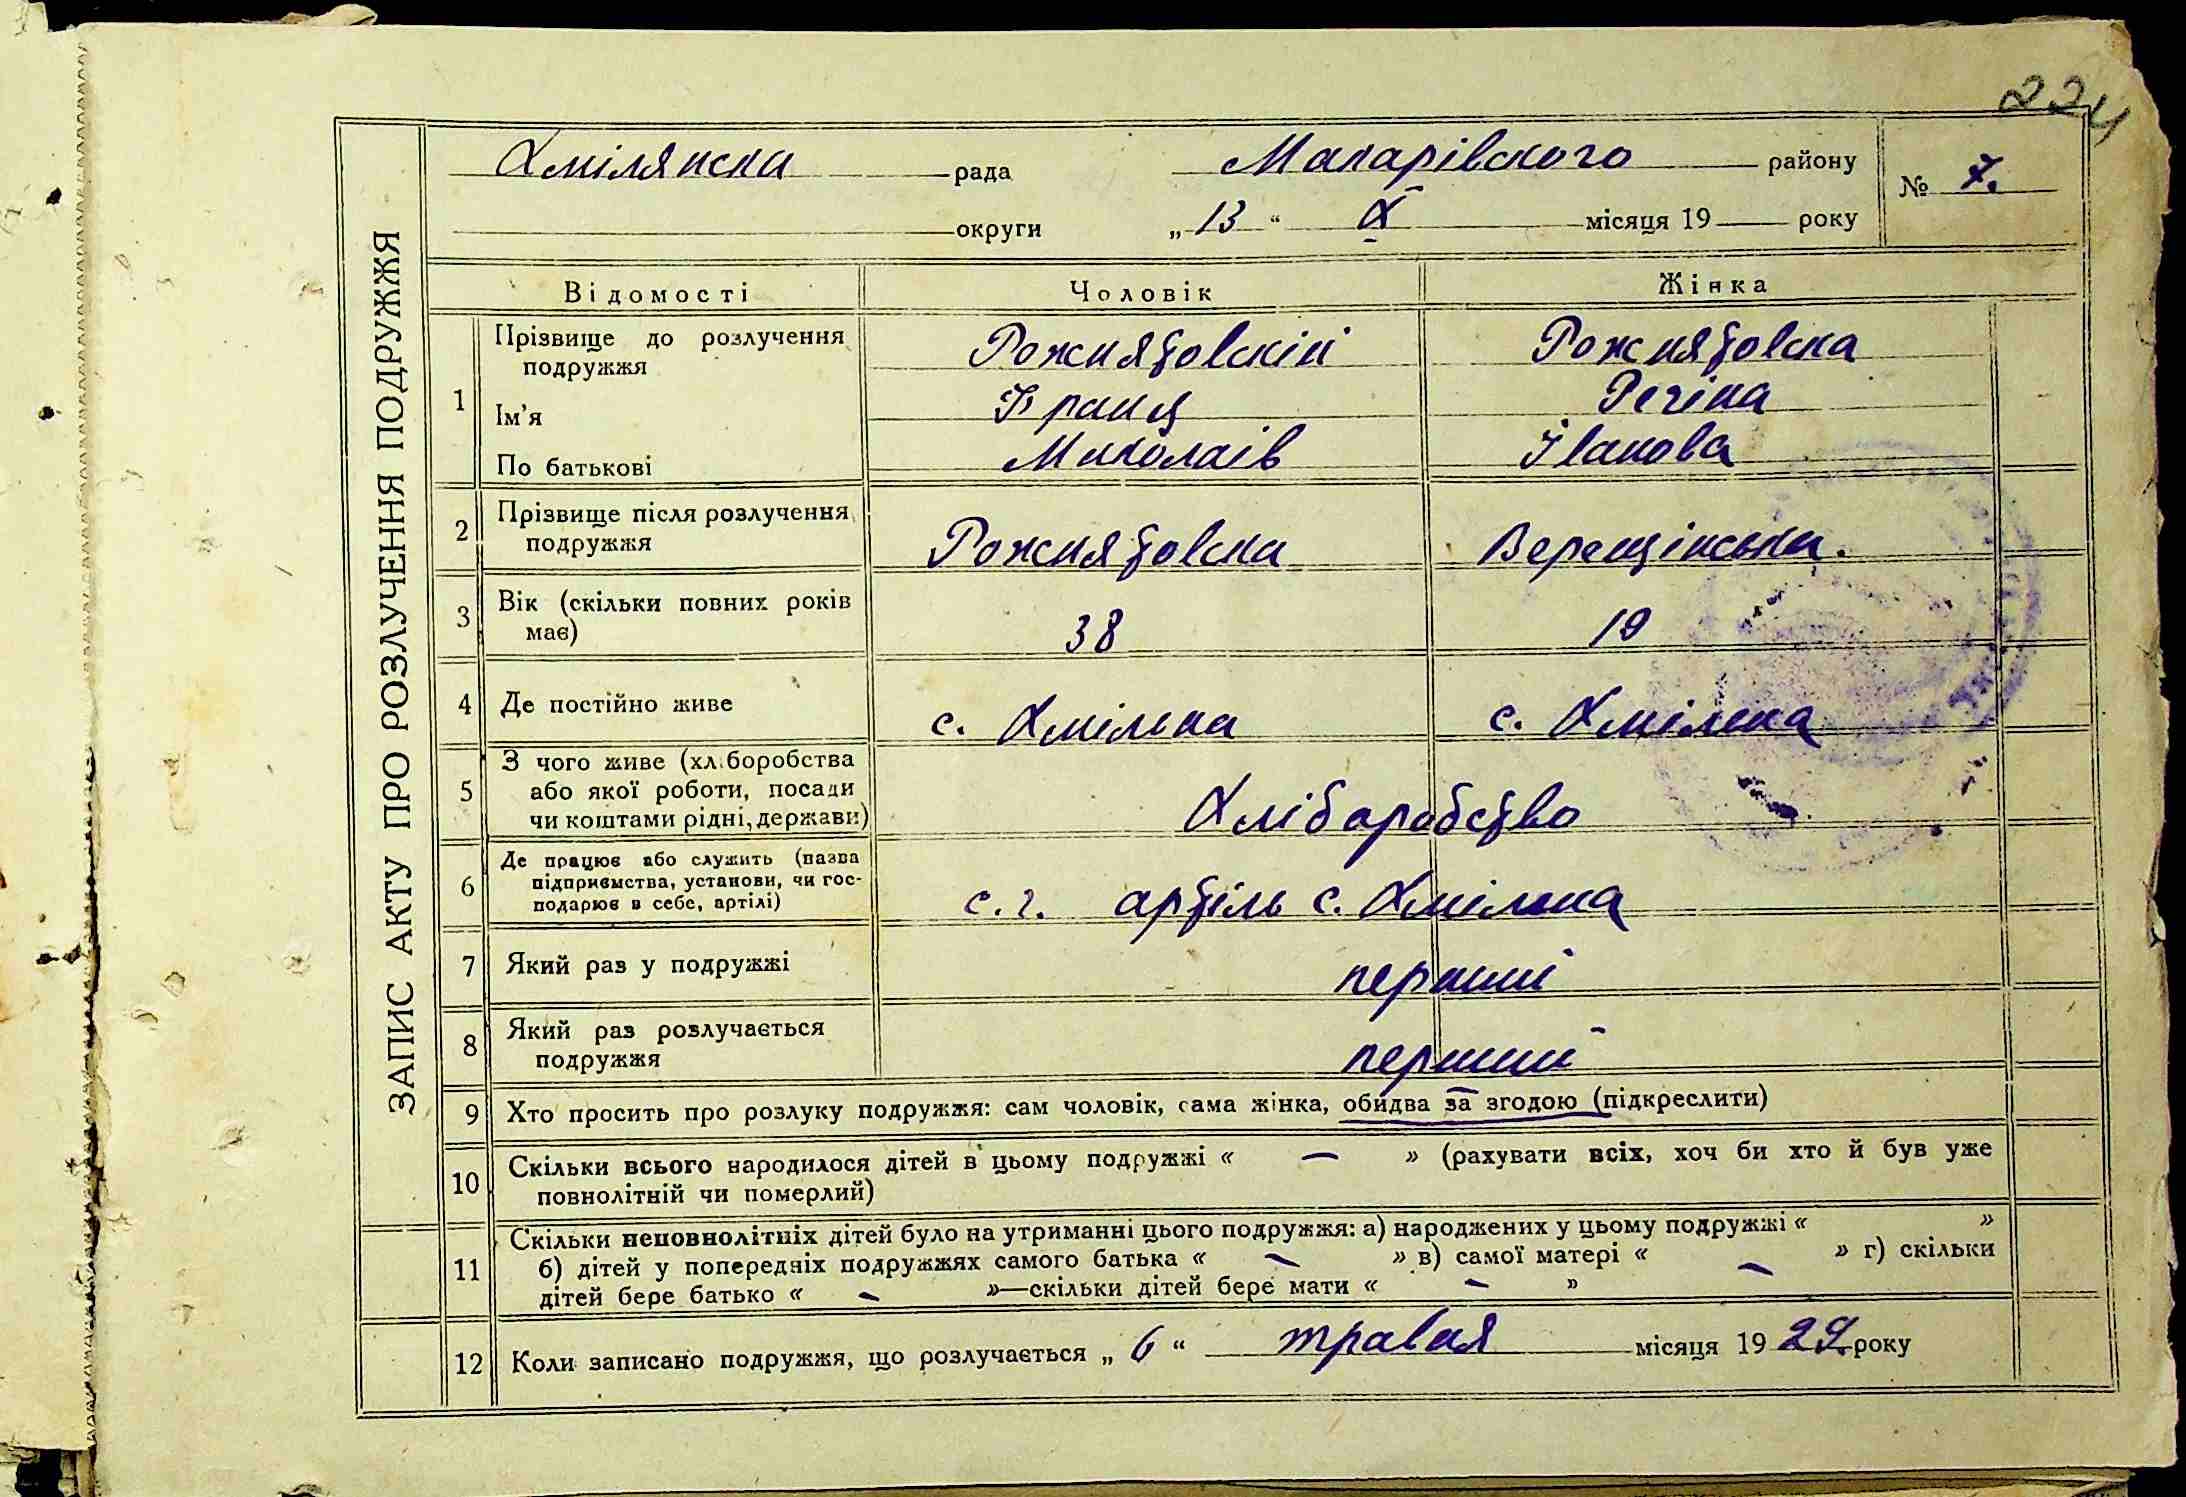 224
ЗАПИС АКТУ ПРО РОЗЛУЧЕННЯ ПОДРУЖЖЯ
Хмілянска рада Макарівского району № 7.
округи „ 13 “ X місяця 19 року
Відомості Чоловік Жінка
1 Прізвище до розлучення подружжя Рожнятовскій Рожнятовска
Ім’я Франц Регіна
По батькові Миколаів Іванова
2 Прізвище після розлучення
подружжя Рожнятовска Верещінська.
3 Вік (скільки повних років
має) 38 19
4 Де постійно живе с. Хмільна с. Хмільна
5 З чого живе (хліборобства
або якої роботи, посади
чи коштами рідні, держави) Хлібаробство
6 Де працює або служить (назва
підприємства, установи, чи гос-
подарює в себе, артілі) с. г. артіль с. Хмільна
7 Який раз у подружжі перший
8 Який раз розлучається
подружжя перший
9 Хто просить про розлуку подружжя: сам чоловік, сама жінка, обидва за згодою (підкреслити)
10 Скільки всього народилося дітей в цьому подружжі « — » (рахувати всіх, хоч би хто й був уже
повнолітній чи померлий)
11 Скільки неповнолітніх дітей було на утриманні цього подружжя: а) народжених у цьому подружжі « »
б) дітей у попередніх подружжях самого батька « — » в) самої матері « — » г) скільки
дітей бере батько « — »—скільки дітей бере мати « — »
12 Коли записано подружжя, що розлучається „ 6 “ травня місяця 19 29 року